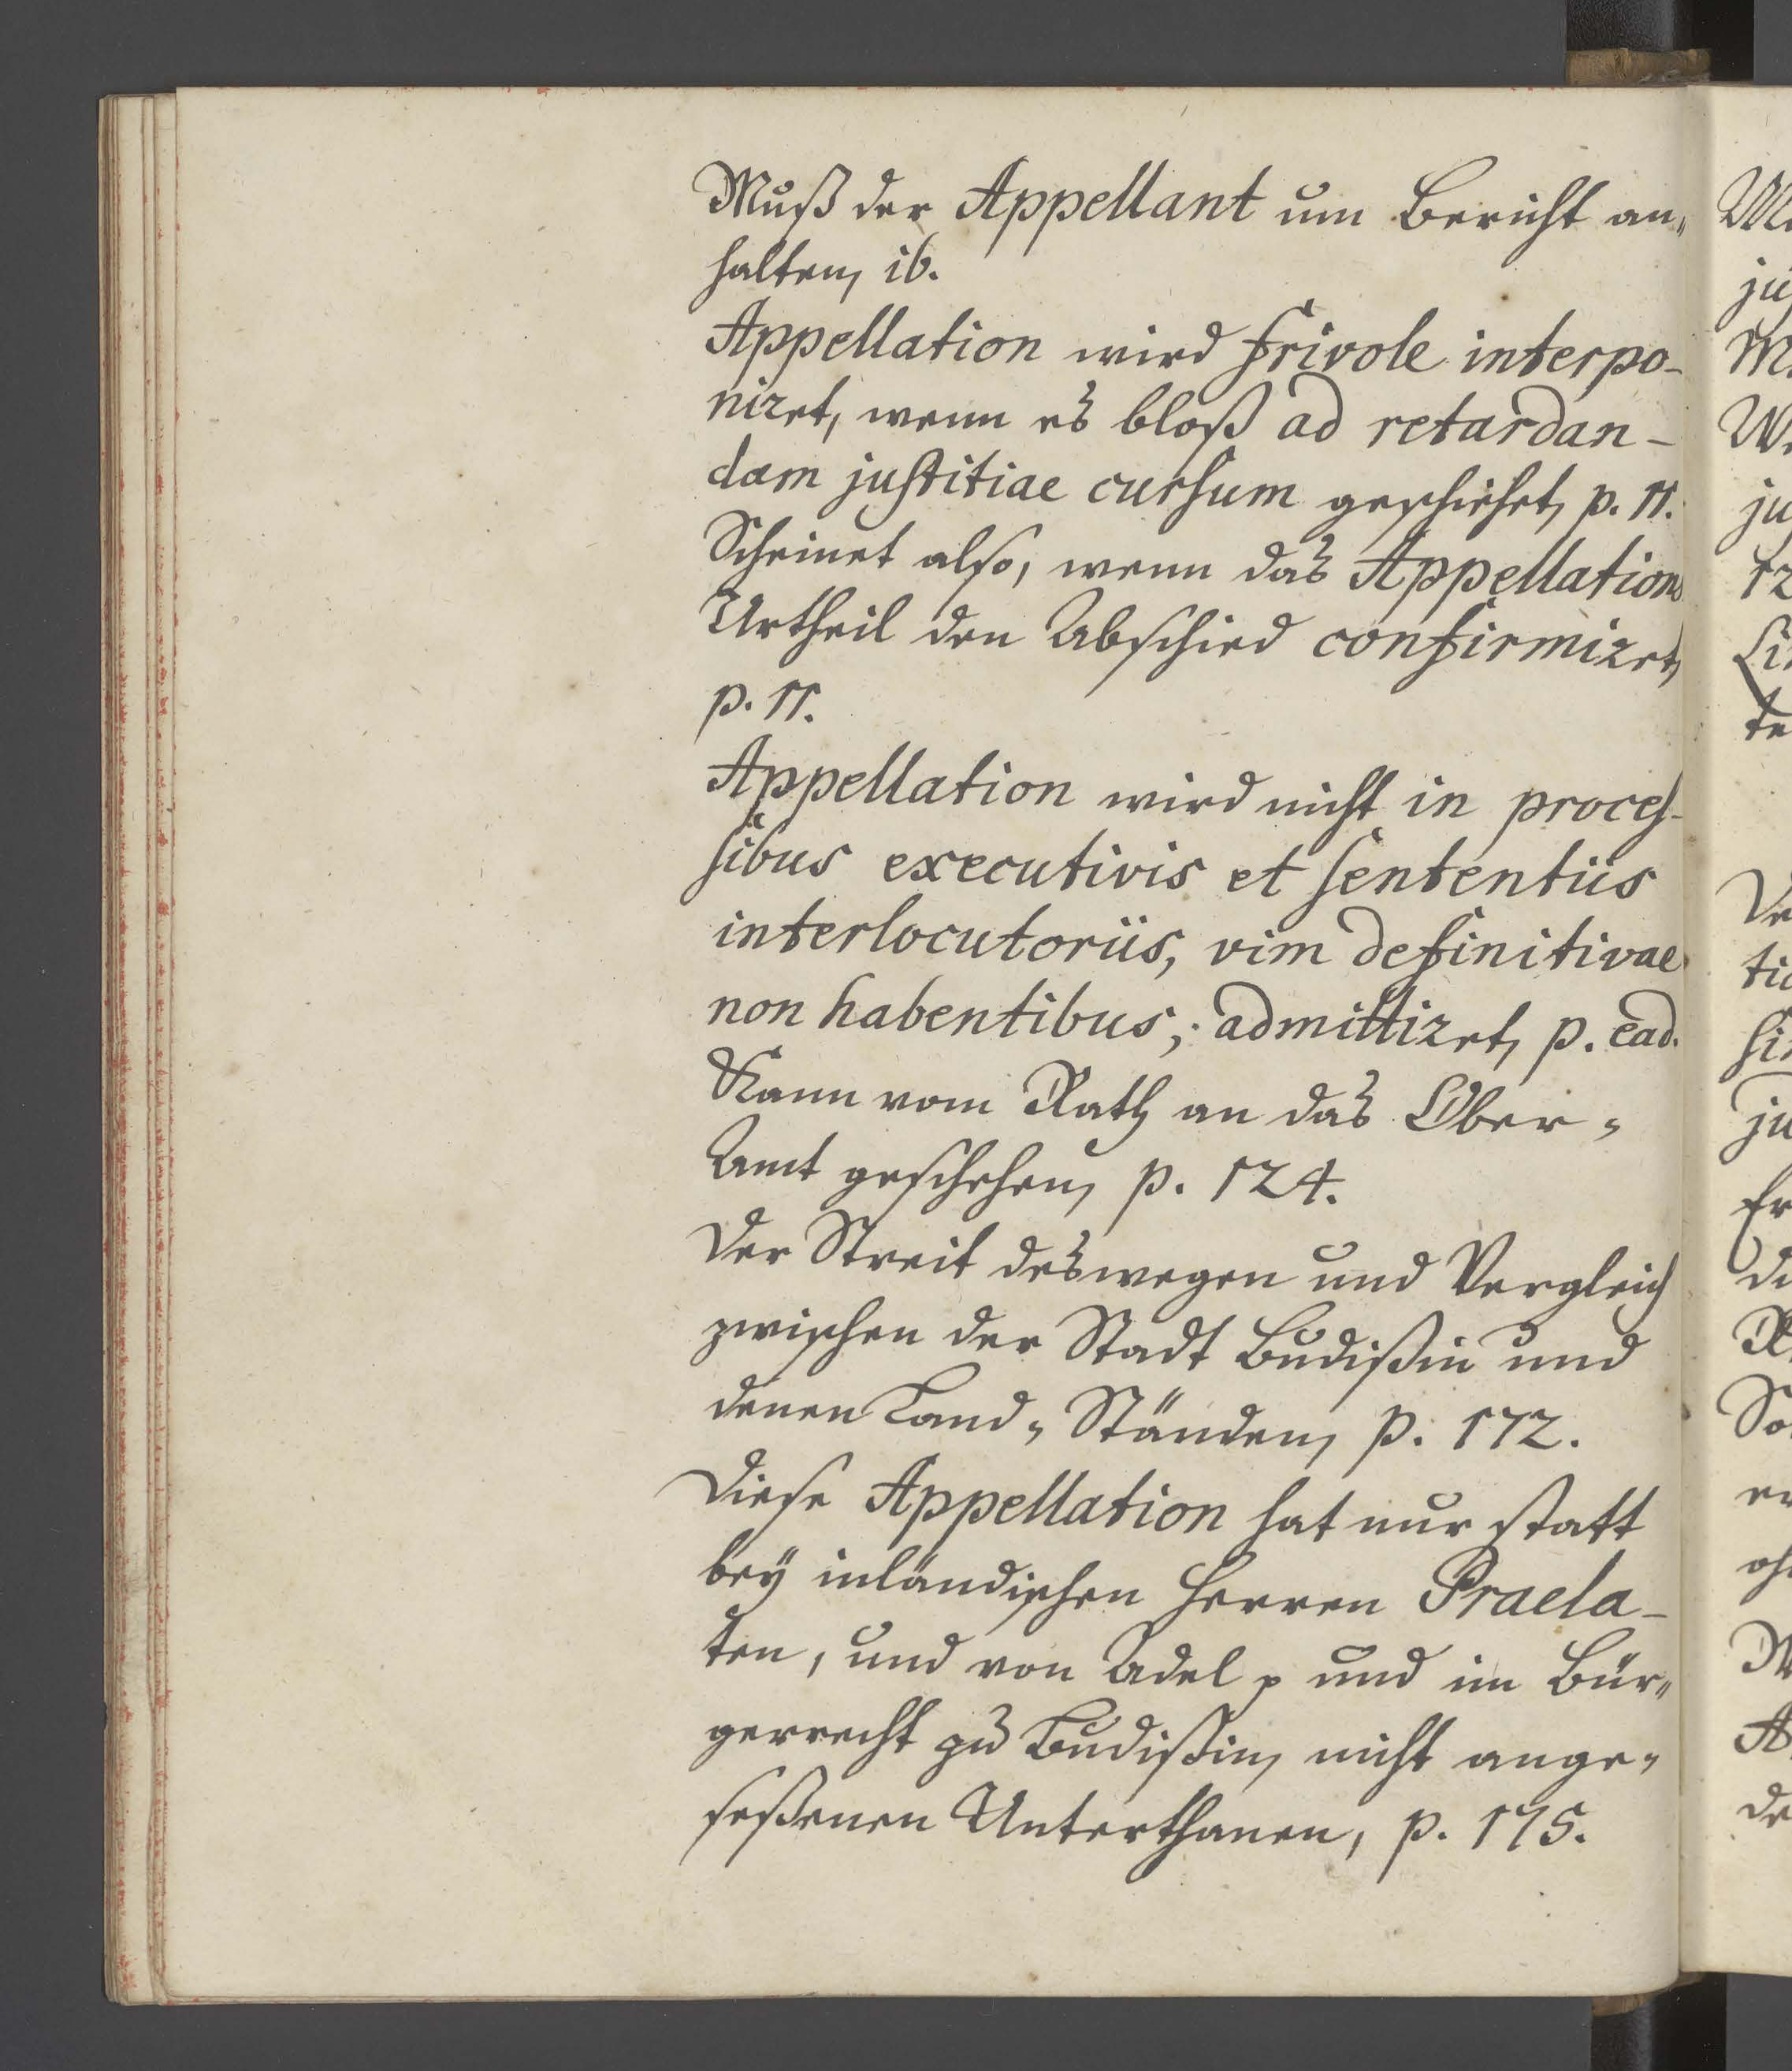 Muß der Appellant um Bericht an„
halten, ib.
Appellation wird frivole interpo-
niret, wenn es bloß ad retardan-
dam justitiae cursum geschiehet, p. 11.
Scheinet also, wenn das Appellations
Urtheil den Abschied confirmiret,
p. 11.
Appellation wird nicht in proces-
sibus executivis et sententiis
interlocutoriis, vim definitivae
non habentibus, admittiret, p. ead.
Kann vom Rath an das Ober„
Amt geschehen, p. 124.
Der Streit deswegen und Vergleich
zwischen der Stadt Budißin und
denen Land„Ständen, p. 172.
Diese Appellation hat nur statt
bey inländischen Herren Praela-
ten, und von Adel p und im Bür„
gerrecht zu Budißin, nicht ange„
seßenen Unterthanen, p. 175.